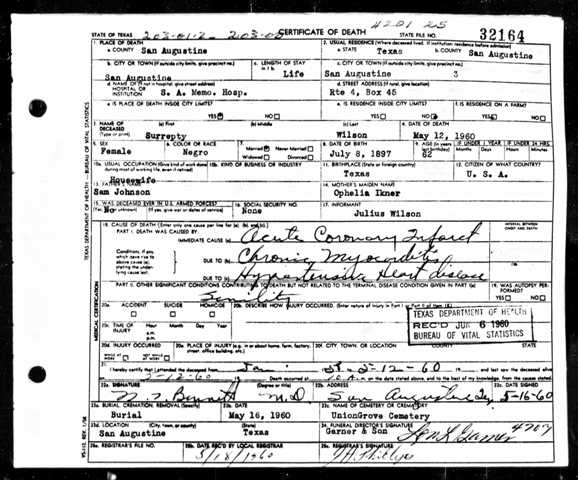 4201 25
STATE OF TEXAS 203-01-2- 203-05 CERTIFICATE OF DEATH STATE FILE NO. 32164
1. PLACE OF DEATH
a. COUNTY San Augustine
2. USUAL RESIDENCE (Where deceased lived. If institution: residence before admission)
a. STATE Texas b. COUNTY San Augustine
b. CITY OR TOWN (If outside city limits, give precinct no.) San Augustine
c. LENGTH OF STAY in 1 b. Life
c. CITY OR TOWN (If outside city limits, give precinct no.) San Augustine 3
d. NAME OF (If not in hospital, give street address) HOSPITAL OR INSTITUTION S. A. Memo. Hosp.
d. STREET ADDRESS (If rural, give location) Rte 4, Box 45
e. IS PLACE OF DEATH INSIDE CITY LIMITS? YES NO
e. IS RESIDENCE INSIDE CITY LIMITS? YES NO
f. IS RESIDENCE ON A FARM? YES NO
3. NAME OF DECEASED (Type or print) (a) First Surrepty (b) Middle (c) Last Wilson
4. DATE OF DEATH May 12, 1960
5. SEX Female
6. COLOR OR RACE Negro
7. Married Never Married Widowed Divorced
8. DATE OF BIRTH July 8, 1897
9. AGE (In years last birthday) 62
IF UNDER 1 YEAR Months Days
IF UNDER 24 HRS. Hours Minutes
10a. USUAL OCCUPATION (Give kind of work done Housewife
10b. KIND OF BUSINESS OR INDUSTRY
11. BIRTHPLACE (State or foreign country) Texas
12. CITIZEN OF WHAT COUNTRY? U. S. A.
13. FATHER'S NAME Sam Johnson
14. MOTHER'S MAIDEN NAME Ophelia Ikner
15. WAS DECEASED EVER IN U.S. ARMED FORCES? No
(If yes, give war or dates of service)
16. SOCIAL SECURITY NO. None
17. INFORMANT Julius Wilson
18. CAUSE OF DEATH (Enter only one cause per line for (a), (b), and (c).)
INTERVAL BETWEEN ONSET AND DEATH
PART I. DEATH WAS CAUSED BY:
IMMEDIATE CAUSE (a) Acute Coronary Infarct
Conditions, if any, which gave rise to above cause (a), stating the underlying cause last.
DUE TO (b) Chronic Myocarditis
DUE TO (c) Hypertensive Heart disease
PART II. OTHER SIGNIFICANT CONDITIONS CONTRIBUTING TO DEATH BUT NOT RELATED TO THE TERMINAL DISEASE CONDITION GIVEN IN PART I (a)
Senility
19. WAS AUTOPSY PERFORMED? YES NO
20a. ACCIDENT SUICIDE HOMICIDE
20b. DESCRIBE HOW INJURY OCCURRED. (Enter nature of injury in Part I or Part II of item 18.)
20c. TIME OF INJURY Hour Month Day Year a.m. p.m.
TEXAS DEPARTMENT OF HEALTH
REC'D JUN 6 1960
BUREAU OF VITAL STATISTICS
20d. INJURY OCCURRED WHILE AT WORK NOT WHILE AT WORK
20e. PLACE OF INJURY (e.g. in or about home, farm, factory, street, office building, etc.)
20f. CITY, TOWN, OR LOCATION COUNTY STATE
21. I hereby certify that I attended the deceased from Jan 5-12-60 and last saw the deceased alive
5-12-60 Death occurred at m. on the date stated above, and to the best of my knowledge, from the causes stated.
22a. SIGNATURE Bennett (Degree or title) M.D
22b. ADDRESS San Augustine
22c. DATE SIGNED 5-16-60
23a. BURIAL, CREMATION, REMOVAL (Specify) Burial
23b. DATE May 16, 1960
23c. NAME OF CEMETERY OR CREMATORY UnionGrove Cemetery
23d. LOCATION (City, town, or county) (State) San Augustine Texas
24. FUNERAL DIRECTOR'S SIGNATURE Garner & Son Garner 4707
25a. REGISTRAR'S FILE NO.
25b. DATE REC'D BY LOCAL REGISTRAR 5/18/1960
25c. REGISTRAR'S SIGNATURE
TEXAS DEPARTMENT OF HEALTH — BUREAU OF VITAL STATISTICS
MEDICAL CERTIFICATION